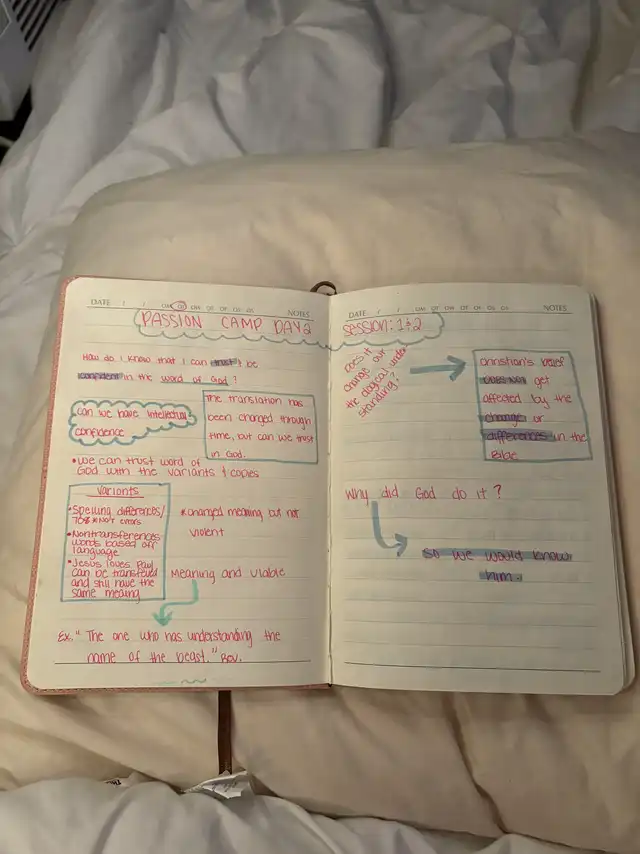 DATE / / NOTES
PASSION CAMP DAY 2
How do I know that I can trust & be
confident in the word of God?
can we have intellectual
confidence
The translation has
been changed through
time, but can we trust
in God.
• we can trust word of
God with the variants & copies
Variants
• Spelling differences/
*Not errors
• Nontransferences
words based off
language
• Jesus loves Paul
can be transfered
and still have the
same meaing
*changed meaning but not
violent
Meaning and viable
Ex. "The one who has understanding the
name of the beast." Rev.
DATE / / NOTES
Session: 1 & 2
Does it
change our
the ological under
standing?
christian's belief
does not get
affected by the
change or
differences in the
Bible
Why did God do it?
so we would know
him.